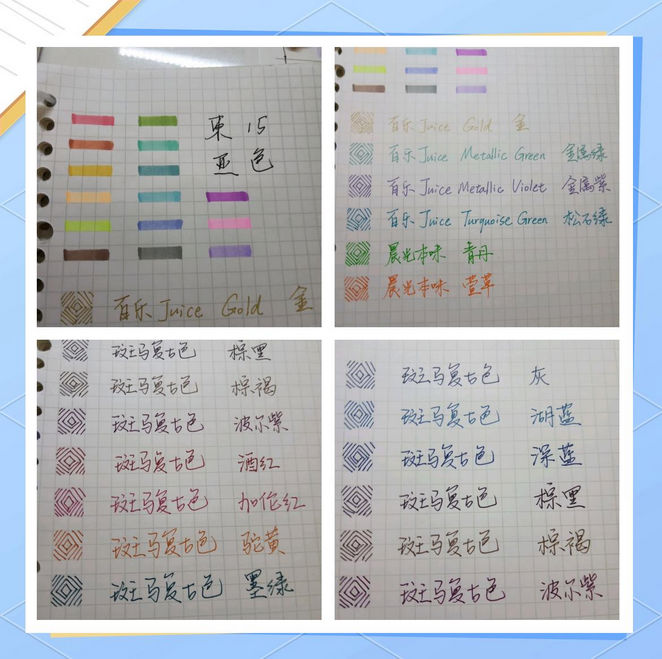 东 15
亚 色
百乐 Juice Gold 金
百乐 Juice Gold 金
百乐 Juice Metallic Green 金属绿
百乐 Juice Metallic Violet 金属紫
百乐 Juice Turquoise Green 松石绿
晨光本味 青丹
晨光本味 萱草
斑马复古色 棕黑
斑马复古色 棕褐
斑马复古色 波尔紫
斑马复古色 酒红
斑马复古色 加作红
斑马复古色 驼黄
斑马复古色 墨绿
斑马复古色 灰
斑马复古色 湖蓝
斑马复古色 深蓝
斑马复古色 棕黑
斑马复古色 棕褐
斑马复古色 波尔紫